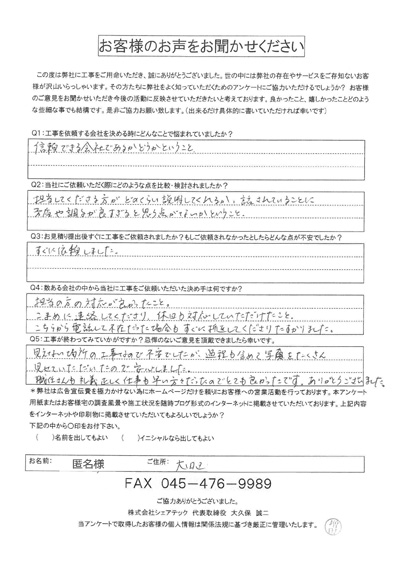 お客様のお声をお聞かせください
この度は弊社に工事をご用命いただき、誠にありがとうございました。世の中には弊社の存在やサービスをご存知ないお客
様が沢山いらっしゃいます。その方たちに弊社をよく知っていただくためのアンケートにご協力いただけるでしょうか? お客様
のご意見をお聞かせいただき今後の活動に反映させていただきたいと考えております。良かったこと、嬉しかったことどのよう
な些細な事でも結構です。是非ご協力お願い致します。(出来るだけ具体的に書いていただければ幸いです)
Q1:工事を依頼する会社を決める時にどんなことで悩まれていましたか?
信頼できる会社であるかどうかということ
Q2:当社にご依頼いただく際にどのような点を比較・検討されましたか?
担当してくださる方がどのくらい説明してくれるか、話されていることに
矛盾や調子が良すぎると思う点がないかということ。
Q3:お見積り提出後すぐに工事をご依頼されましたか?もしご依頼されなかったとしたらどんな点が不安でしたか?
すぐに依頼しました。
Q4:数ある会社の中から当社に工事をご依頼いただいた決め手は何ですか?
担当の方の対応が良かったこと。
こまめに連絡してくださり、休日も対応していただけたこと。
こちらから電話して不在だった場合もすぐに折返してくださりたすかりました。
Q5:工事が終わってみていかがですか?忌憚のないご意見を頂戴できましたら幸いです。
見えない場所の工事なので不安でしたが、過程も含めて写真をたくさん
見せていただいたので安心しました。
職人さんも礼儀正しく仕事も早い方々だったのでとても良かったです。ありがとうございました。
*弊社は広告宣伝費を極力かけない為にホームページだけを頼りにお客様への営業活動を行っております。本アンケート
用紙またはお客様宅の調査風景や施工状況を随時ブログ形式のインターネットに掲載させていただいております。上記内容
をインターネットや印刷物に掲載させていただいてもよろしいでしょうか?
下記の中から〇印をお付下さい。
( )名前を出してもよい ( )イニシャルなら出してもよい
お名前: 匿名様 ご住所:
FAX 045-476-9989
ご協力ありがとうございました。
株式会社シェアテック 代表取締役 大久保 誠二
当アンケートで取得したお客様の個人情報は関係法規に基づき厳正に管理いたします。